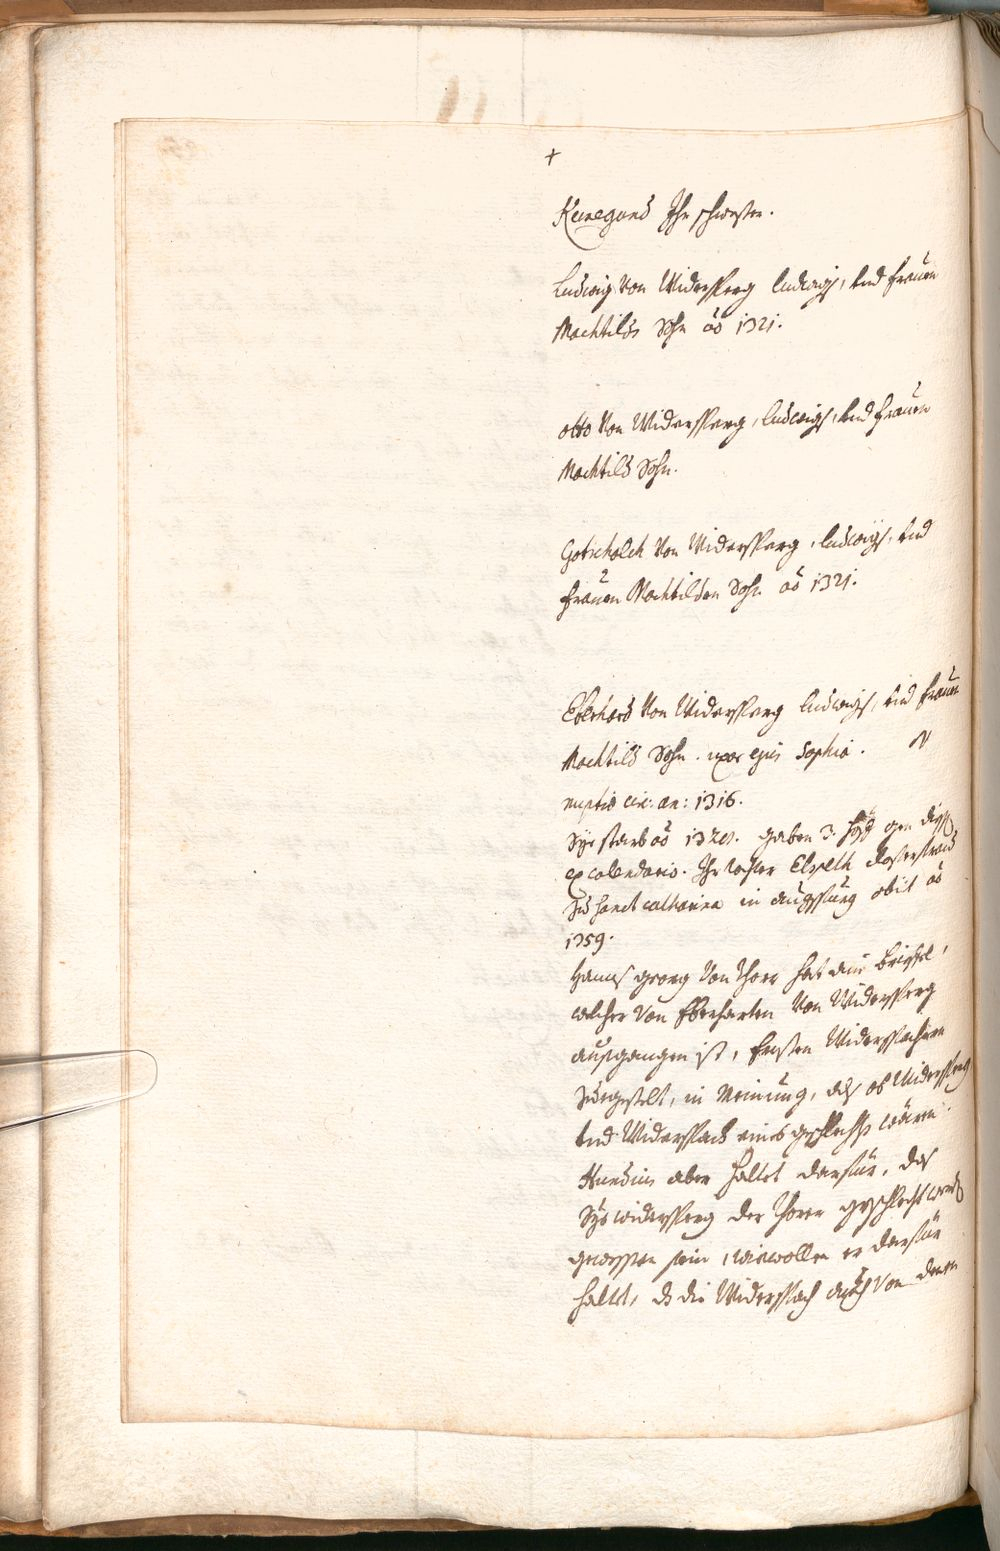 +
Kunegund Ihr schwester.
Ludwig von Widersperg Ludwigs, und frauen
Machtilds Sohn ao 1321.
Otto von Widersperg, Ludwigs, und frauen
Machtild Sohn.
Gotschalch von Widersperg, Ludwigs, und
frauen Machtilden Sohn ao 1321.
Eberhard von Widersperg Ludwigs, und frauen
Machtild Sohn. uxor ejus Sophia. N
nuptio cir: an: 1316.
Sye starb ao gaben 3. gen
ex calendario. Ihr tochter Elspeth Closterfraw
zu Sanct Catharina in Augspurg obiit ao
1359.
Hanns Georg von Thor hat ain brieffel,
welcher von Eberharten von Widersperg
ausgangen ist, Widerspachern
zuegestelt, in Meinung, das ob Widersperg
und Widerspach eines geschlechts wären.
Hundius aber haltet darfür, das
Sye Widersperg der Thorer geschlecht
gewessen sein, wiewollen er darfür
haltet, ds die Widerspach auch von denen